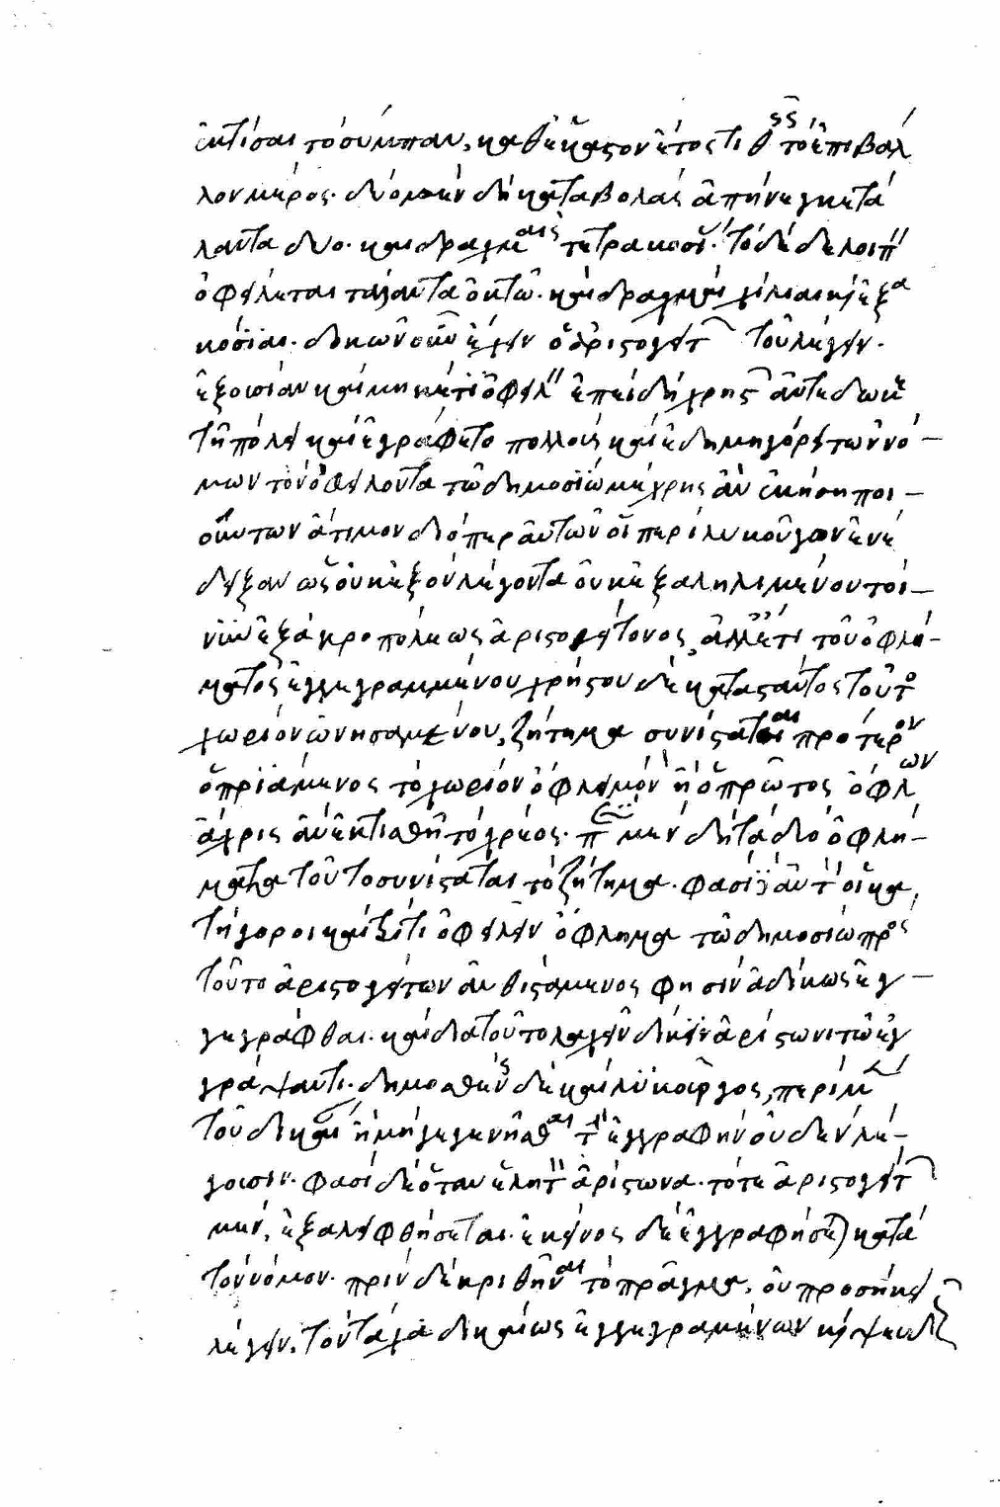 ἐκτίσαι τὸ σύμπαν, καθ' ἕκαστον ἔτος τιθεὶς τὸ ἐπιβάλ
λον μέρος. δύο μὲν δὴ καταβολὰς ἀπήνεγκε τά
λαντα δύο. καὶ δραχμὰς τετρακοσί. τὸ δὲ δὴ λοιπ
ὀφείλεται τάλαντα ὀκτὼ. καὶ δραχμαὶ χίλιαι καὶ ἑξα
κόσιαι. δεικνὺσιν ἔχειν ὁ ἀριστογείτ τοῦ λέγειν.
ἐξουσίαν καὶ μηκέτι ὀφείλ ἐπειδὴ χρήστ ἀντέδωκε
τῇ πόλει καὶ ἐγράφετο πολλοὺς καὶ ἐδημηγόρει τῶν νό
μων τὸν ὀφείλοντα τῷ δημοσίῳ μέχρις ἂν ἐκτίσῃ ποι
ούντων ἄτιμον διόπερ αὐτῶν οἱ περὶ λυκοῦργον ἐνέ
δειξαν ὡς οὐκ ἐξὸν λέγοντα οὐκ ἐξαληλιμένου τοί
νυν ἐξ ἀκροπόλεως ἀριστογείτονος, ἀλλ' ἔτι τοῦ ὀφλή
ματος ἐγγεγραμμένου χρήστου δὲ καταστάντος τοῦ τὸ
χωρίον ὠνησαμένου, ζήτημα συνίσταται πρότερον
ὁ πριάμενος τὸ χωρίον ὀφλειμὸν ἢ ὁ πρῶτος ὀφλων
ἄχρις ἂν ἐκτισθῇ τὸ χρέος. π μὲν δὴ τὰ δύο ὀφλή
ματα τοῦτο συνίσταται τὸ ζήτημα. φασὶ γὰρ αὐτ οἱ κα
τήγοροι καὶ ἔτι ὀφείλειν ὄφλημα τῷ δημοσίῳ πρὸς
τοῦτο ἀριστογείτων ἀνθιστάμενος φησὶν ἀδίκως ἐγ
γεγράφθαι. καὶ διὰ τοῦτο λαχεῖν δίκην ἀρίστωνι τῷ ἐγ
γράψαντι. δημοσθένης δὲ καὶ λυκοῦργος, περὶ μὲν
τοῦ δικαί ἢ μὴ γεγενῆσθαι τ ἐγγραφὴν οὐδὲν λέ
γουσιν. φασὶ δὲ ὅταν ἕλητ ἀρίστωνα. τότε ἀριστογείτ
μὲν, ἐξαλειφθήσεται. ἐκεῖνος δὲ ἐγγραφήσεται κατὰ
τὸν νόμον. πρὶν δὲ κριθῆναι τὸ πρᾶγμα, οὐ προσήκει
λέγειν. τοὺς τάχα δικαίως ἐγγεγραμμένων καὶ ψευδ